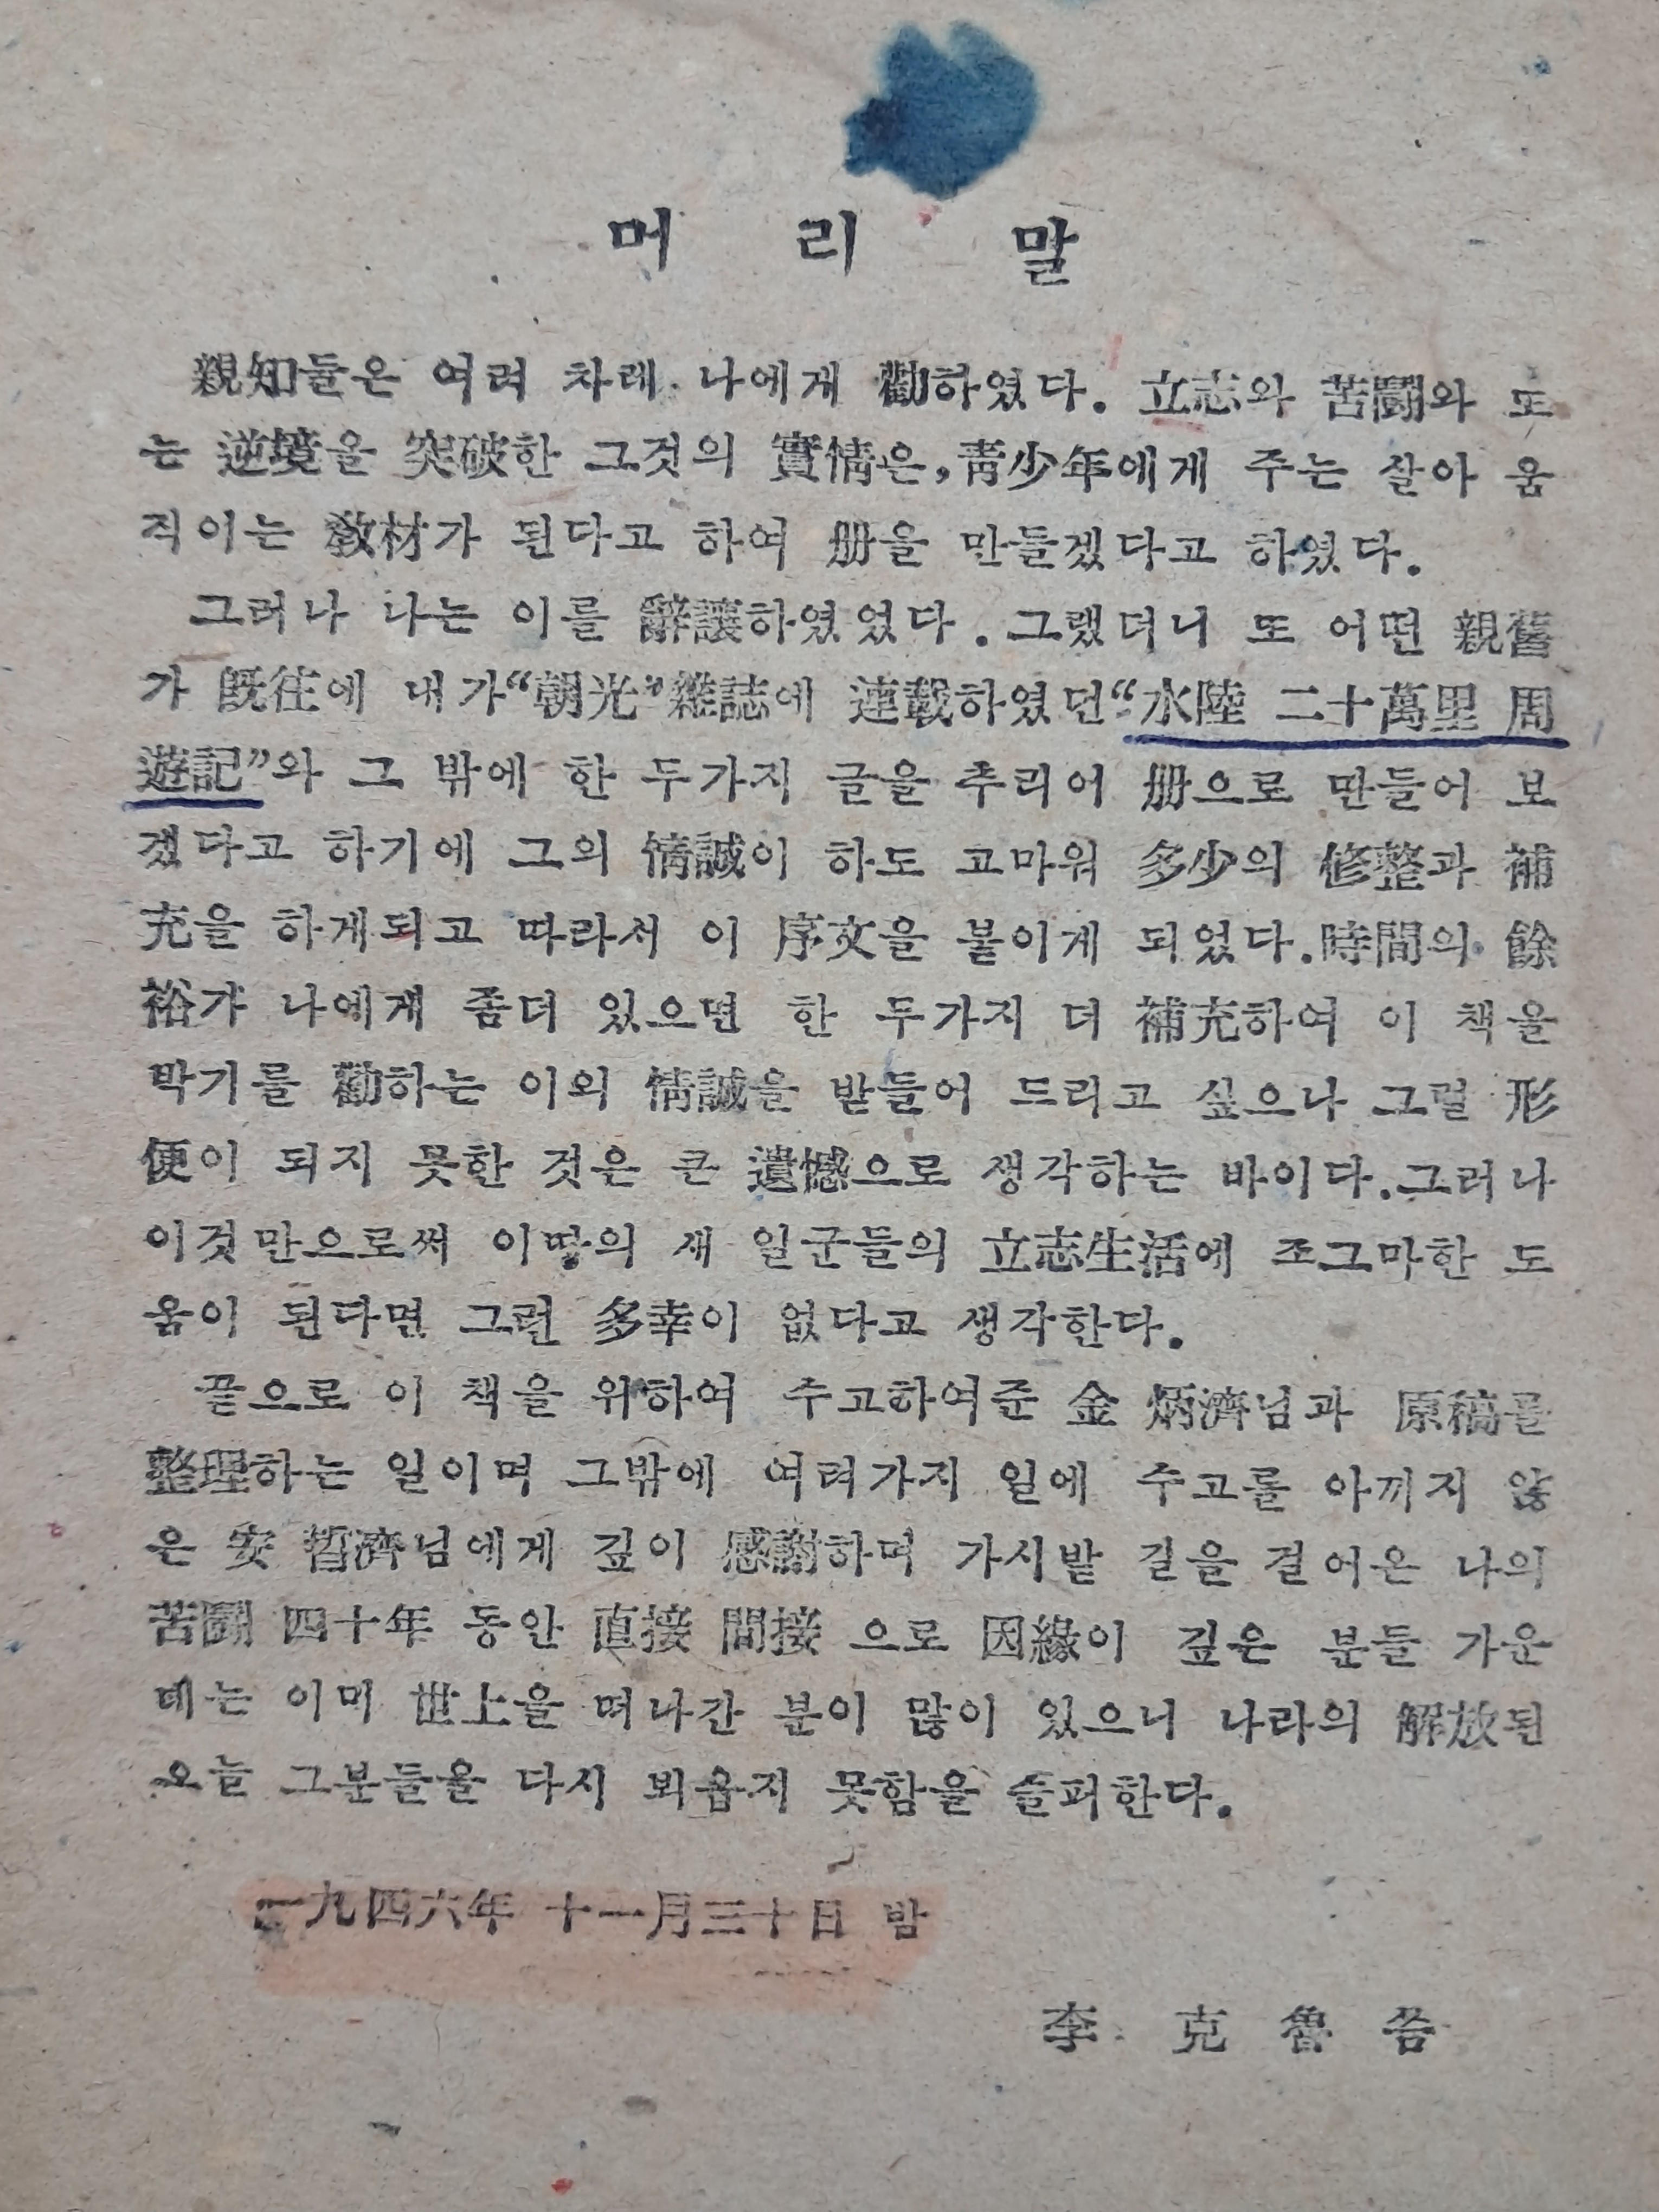 머리말
親知들은 여려 차레 나에게 勸하였다. 立志와 苦鬪와 또
는 逆境을 突破한 그것의 實情은, 靑少年에게 주는 살아 움
직이는 敎材가 된다고 하여 册을 만들겠다고 하였다.
그러나 나는 이를 辭讓하였었다. 그랬더니 또 어떤 親舊
가 旣往에 내가“朝光”雜誌에 連載하였던“水陸 二十萬里 周
遊記”와 그 밖에 한 두가지 글을 추리어 册으로 만들어 보
겠다고 하기에 그의 情誠이 하도 고마워 多少의 修整과 補
充을 하게되고 따라서 이 序文을 붙이게 되었다. 時間의 餘
裕가 나에게 좀더 있으면 한 두가지 더 補充하여 이 책을
박기를 勸하는 이의 情誠을 받들어 드리고 싶으나 그럴 形
便이 되지 못한 것은 큰 遺憾으로 생각하는 바이다. 그러나
이것만으로써 이땅의 새 일군들의 立志生活에 조그마한 도
움이 된다면 그런 多幸이 없다고 생각한다.
끝으로 이 책을 위하여 수고하여준 金 炳濟님과 原稿를
整理하는 일이며 그밖에 여려가지 일에 수고를 아끼지 않
은 安 晳濟님에게 깊이 感謝하며 가시밭 길을 걸어온 나의
苦鬪 四十年 동안 直接 間接 으로 因緣이 깊은 분들 가운
데는 이미 世上을 떠나간 분이 많이 있으니 나라의 解放된
오늘 그분들을 다시 뵈옵지 못함을 슬퍼한다.
一九四六年 十一月三十日 밤
李 克 魯 씀